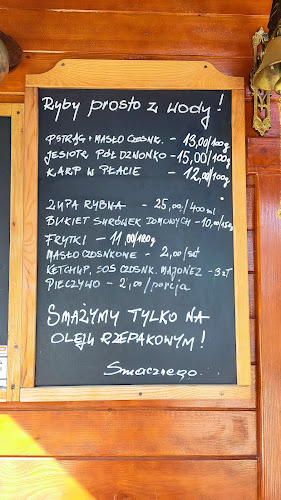 Ryby prosto z wody!
PSTRĄG + MASŁO CZOSNK. - 13,00/100g
JESIOTR PÓŁ DZWONKO - 15,00/100g
KARP W PŁACIE - 12,00/100g
ZUPA RYBNA - 25,00/400ml
BUKIET SURÓWEK DOMOWYCH - 10,00/150g
FRYTKI - 11,00/180g
MASŁO CZOSNKOWE - 2,00/szt
KETCHUP, SOS CZOSNK. MAJONEZ - 3 zł
PIECZYWO - 2,00/porcja
SMAŻYMY TYLKO NA
OLEJU RZEPAKOWYM!
Smacznego.